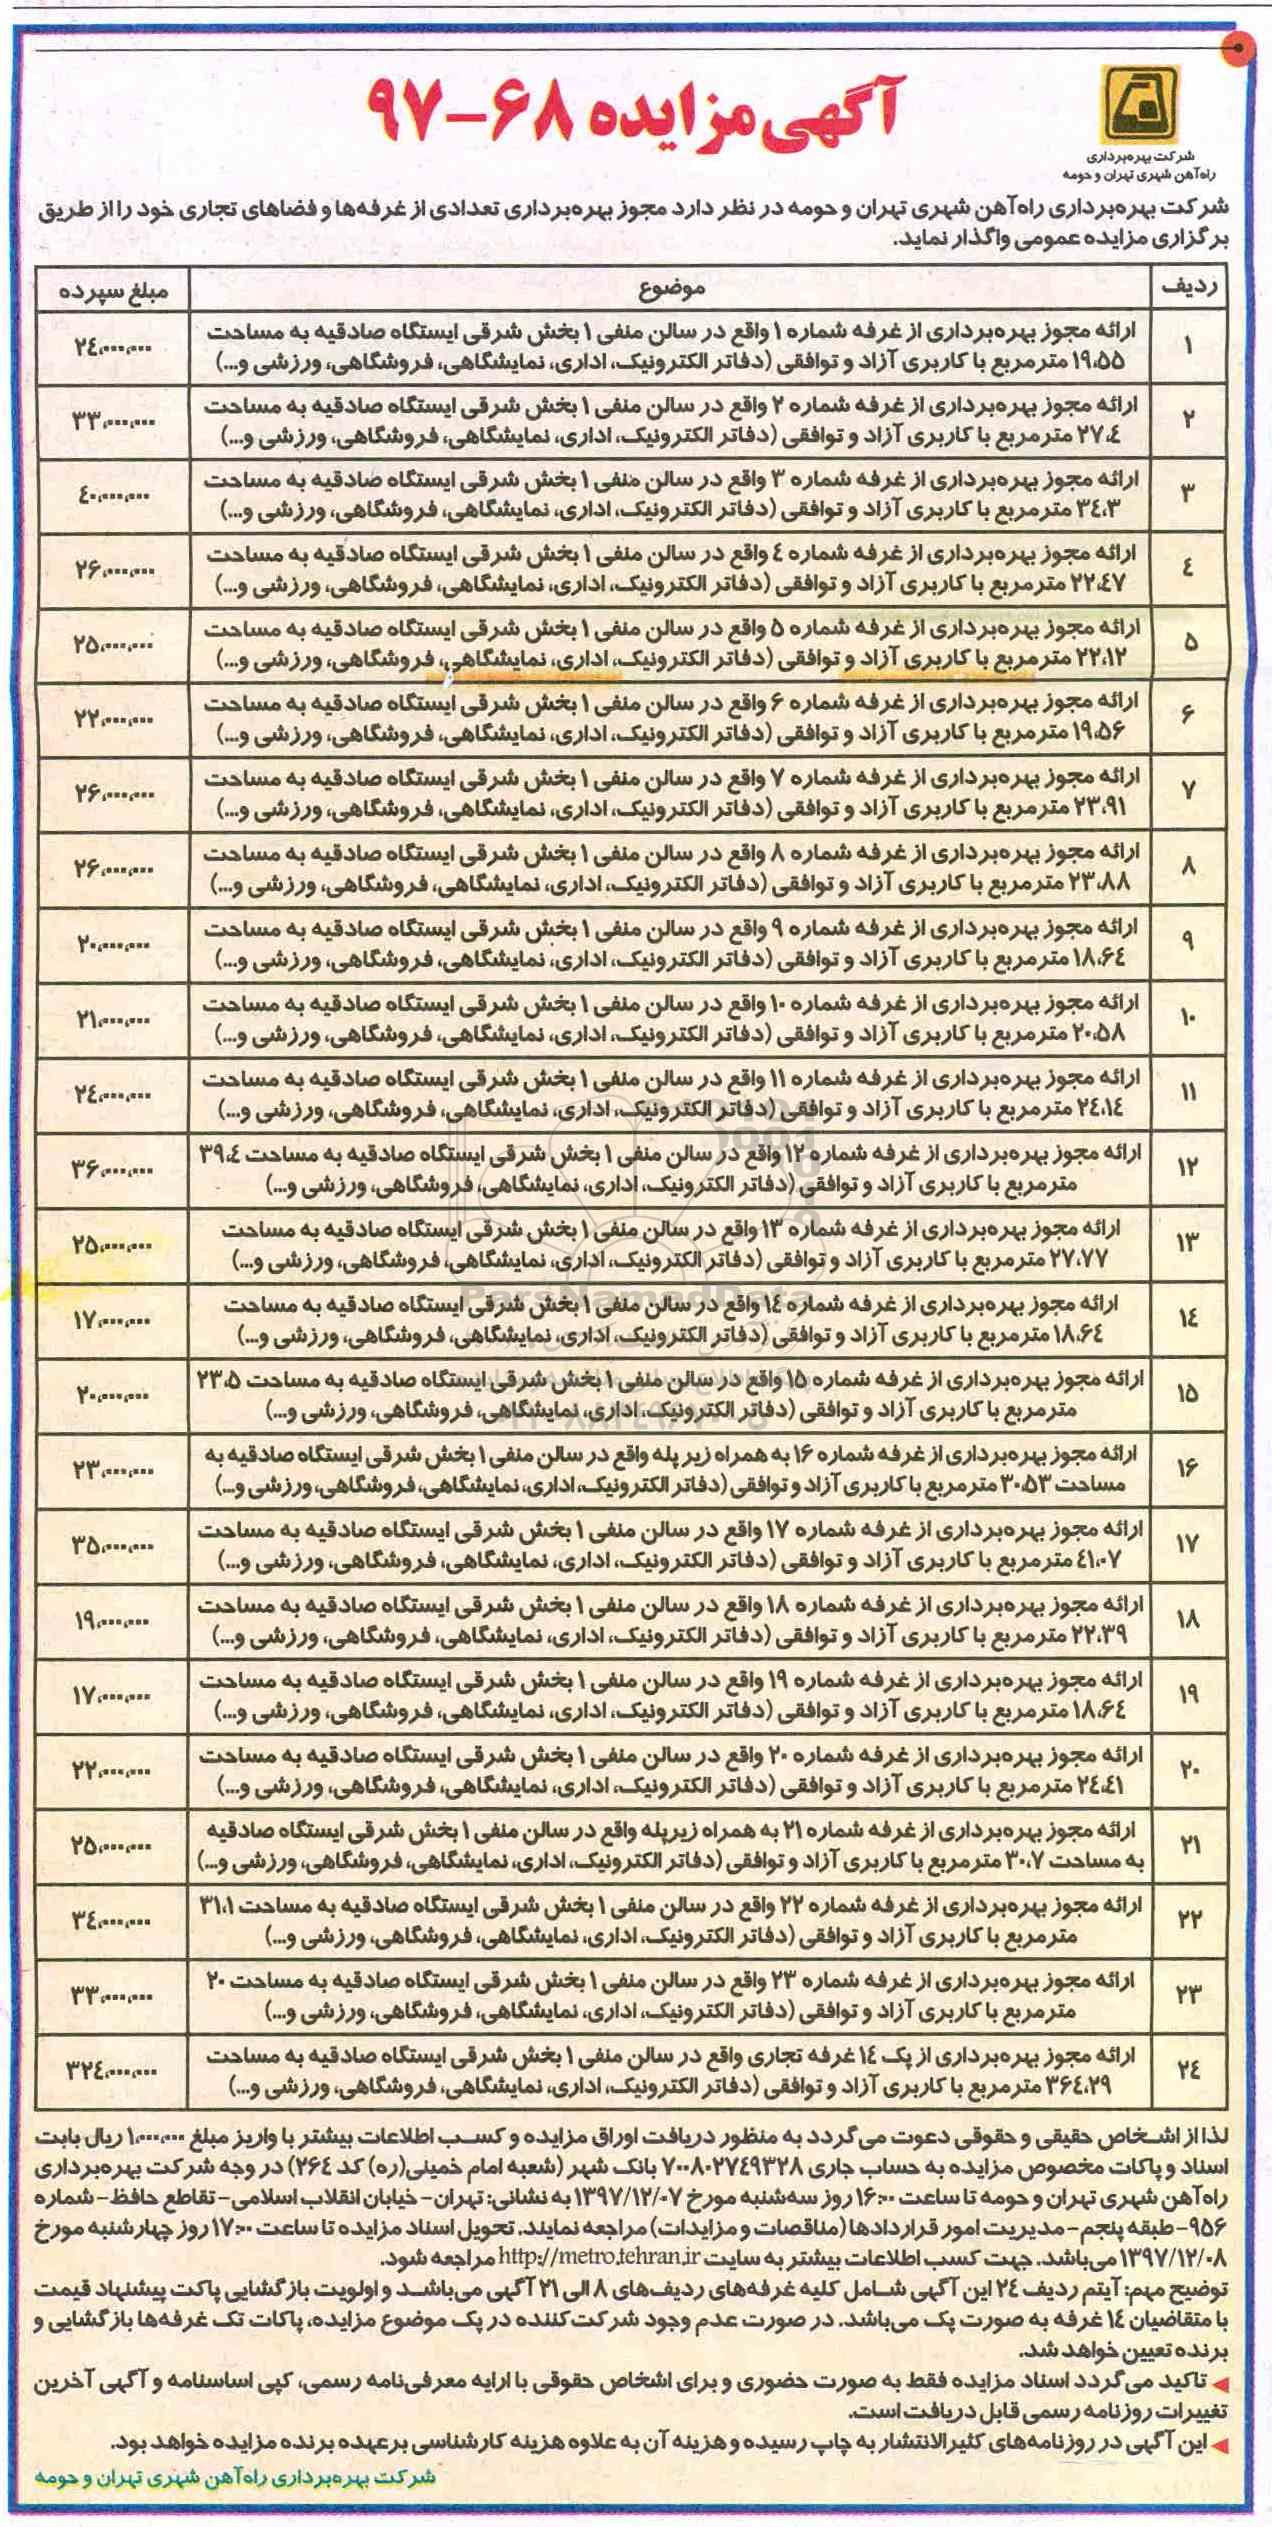 آگهی مزایده ۶۸-۹۷
شرکت بهره‌برداری
راه‌آهن شهری تهران و حومه
شرکت بهره‌برداری راه‌آهن شهری تهران و حومه در نظر دارد مجوز بهره‌برداری تعدادی از غرفه‌ها و فضاهای تجاری خود را از طریق
برگزاری مزایده عمومی واگذار نماید.
ردیف موضوع مبلغ سپرده
۱ ارائه مجوز بهره‌برداری از غرفه شماره ۱ واقع در سالن منفی ۱ بخش شرقی ایستگاه صادقیه به مساحت ۲۴،۰۰۰،۰۰۰
۱۹،۵۵ مترمربع با کاربری آزاد و توافقی (دفاتر الکترونیک، اداری، نمایشگاهی، فروشگاهی، ورزشی و...)
۲ ارائه مجوز بهره‌برداری از غرفه شماره ۲ واقع در سالن منفی ۱ بخش شرقی ایستگاه صادقیه به مساحت ۳۳،۰۰۰،۰۰۰
۲۷،۴ مترمربع با کاربری آزاد و توافقی (دفاتر الکترونیک، اداری، نمایشگاهی، فروشگاهی، ورزشی و...)
۳ ارائه مجوز بهره‌برداری از غرفه شماره ۳ واقع در سالن منفی ۱ بخش شرقی ایستگاه صادقیه به مساحت ۴۰،۰۰۰،۰۰۰
۳۴،۳ مترمربع با کاربری آزاد و توافقی (دفاتر الکترونیک، اداری، نمایشگاهی، فروشگاهی، ورزشی و...)
۴ ارائه مجوز بهره‌برداری از غرفه شماره ۴ واقع در سالن منفی ۱ بخش شرقی ایستگاه صادقیه به مساحت ۲۶،۰۰۰،۰۰۰
۲۲،۴۷ مترمربع با کاربری آزاد و توافقی (دفاتر الکترونیک، اداری، نمایشگاهی، فروشگاهی، ورزشی و...)
۵ ارائه مجوز بهره‌برداری از غرفه شماره ۵ واقع در سالن منفی ۱ بخش شرقی ایستگاه صادقیه به مساحت ۲۵،۰۰۰،۰۰۰
۲۲،۱۲ مترمربع با کاربری آزاد و توافقی (دفاتر الکترونیک، اداری، نمایشگاهی، فروشگاهی، ورزشی و...)
۶ ارائه مجوز بهره‌برداری از غرفه شماره ۶ واقع در سالن منفی ۱ بخش شرقی ایستگاه صادقیه به مساحت ۲۲،۰۰۰،۰۰۰
۱۹،۵۶ مترمربع با کاربری آزاد و توافقی (دفاتر الکترونیک، اداری، نمایشگاهی، فروشگاهی، ورزشی و...)
۷ ارائه مجوز بهره‌برداری از غرفه شماره ۷ واقع در سالن منفی ۱ بخش شرقی ایستگاه صادقیه به مساحت ۲۶،۰۰۰،۰۰۰
۲۳،۹۱ مترمربع با کاربری آزاد و توافقی (دفاتر الکترونیک، اداری، نمایشگاهی، فروشگاهی، ورزشی و...)
۸ ارائه مجوز بهره‌برداری از غرفه شماره ۸ واقع در سالن منفی ۱ بخش شرقی ایستگاه صادقیه به مساحت ۲۶،۰۰۰،۰۰۰
۲۳،۸۸ مترمربع با کاربری آزاد و توافقی (دفاتر الکترونیک، اداری، نمایشگاهی، فروشگاهی، ورزشی و...)
۹ ارائه مجوز بهره‌برداری از غرفه شماره ۹ واقع در سالن منفی ۱ بخش شرقی ایستگاه صادقیه به مساحت ۲۰،۰۰۰،۰۰۰
۱۸،۶۴ مترمربع با کاربری آزاد و توافقی (دفاتر الکترونیک، اداری، نمایشگاهی، فروشگاهی، ورزشی و...)
۱۰ ارائه مجوز بهره‌برداری از غرفه شماره ۱۰ واقع در سالن منفی ۱ بخش شرقی ایستگاه صادقیه به مساحت ۲۱،۰۰۰،۰۰۰
۲۰،۵۸ مترمربع با کاربری آزاد و توافقی (دفاتر الکترونیک، اداری، نمایشگاهی، فروشگاهی، ورزشی و...)
۱۱ ارائه مجوز بهره‌برداری از غرفه شماره ۱۱ واقع در سالن منفی ۱ بخش شرقی ایستگاه صادقیه به مساحت ۲۴،۰۰۰،۰۰۰
۲۴،۱۴ مترمربع با کاربری آزاد و توافقی (دفاتر الکترونیک، اداری، نمایشگاهی، فروشگاهی، ورزشی و...)
۱۲ ارائه مجوز بهره‌برداری از غرفه شماره ۱۲ واقع در سالن منفی ۱ بخش شرقی ایستگاه صادقیه به مساحت ۳۹،۴ ۳۶،۰۰۰،۰۰۰
مترمربع با کاربری آزاد و توافقی (دفاتر الکترونیک، اداری، نمایشگاهی، فروشگاهی، ورزشی و...)
۱۳ ارائه مجوز بهره‌برداری از غرفه شماره ۱۳ واقع در سالن منفی ۱ بخش شرقی ایستگاه صادقیه به مساحت ۲۵،۰۰۰،۰۰۰
۲۷،۷۷ مترمربع با کاربری آزاد و توافقی (دفاتر الکترونیک، اداری، نمایشگاهی، فروشگاهی، ورزشی و...)
ParsNamadData
۱۴ ارائه مجوز بهره‌برداری از غرفه شماره ۱۴ واقع در سالن منفی ۱ بخش شرقی ایستگاه صادقیه به مساحت ۱۷،۰۰۰،۰۰۰
۱۸،۶۴ مترمربع با کاربری آزاد و توافقی (دفاتر الکترونیک، اداری، نمایشگاهی، فروشگاهی، ورزشی و...)
۱۵ ارائه مجوز بهره‌برداری از غرفه شماره ۱۵ واقع در سالن منفی ۱ بخش شرقی ایستگاه صادقیه به مساحت ۲۳،۵ ۲۰،۰۰۰،۰۰۰
مترمربع با کاربری آزاد و توافقی (دفاتر الکترونیک، اداری، نمایشگاهی، فروشگاهی، ورزشی و...)
۱۶ ارائه مجوز بهره‌برداری از غرفه شماره ۱۶ به همراه زیر پله واقع در سالن منفی ۱ بخش شرقی ایستگاه صادقیه به ۲۳،۰۰۰،۰۰۰
مساحت ۳۰،۵۳ مترمربع با کاربری آزاد و توافقی (دفاتر الکترونیک، اداری، نمایشگاهی، فروشگاهی، ورزشی و...)
۱۷ ارائه مجوز بهره‌برداری از غرفه شماره ۱۷ واقع در سالن منفی ۱ بخش شرقی ایستگاه صادقیه به مساحت ۳۵،۰۰۰،۰۰۰
۴۱،۰۷ مترمربع با کاربری آزاد و توافقی (دفاتر الکترونیک، اداری، نمایشگاهی، فروشگاهی، ورزشی و...)
۱۸ ارائه مجوز بهره‌برداری از غرفه شماره ۱۸ واقع در سالن منفی ۱ بخش شرقی ایستگاه صادقیه به مساحت ۱۹،۰۰۰،۰۰۰
۲۲،۳۹ مترمربع با کاربری آزاد و توافقی (دفاتر الکترونیک، اداری، نمایشگاهی، فروشگاهی، ورزشی و...)
۱۹ ارائه مجوز بهره‌برداری از غرفه شماره ۱۹ واقع در سالن منفی ۱ بخش شرقی ایستگاه صادقیه به مساحت ۱۷،۰۰۰،۰۰۰
۱۸،۶۴ مترمربع با کاربری آزاد و توافقی (دفاتر الکترونیک، اداری، نمایشگاهی، فروشگاهی، ورزشی و...)
۲۰ ارائه مجوز بهره‌برداری از غرفه شماره ۲۰ واقع در سالن منفی ۱ بخش شرقی ایستگاه صادقیه به مساحت ۲۲،۰۰۰،۰۰۰
۲۴،۴۱ مترمربع با کاربری آزاد و توافقی (دفاتر الکترونیک، اداری، نمایشگاهی، فروشگاهی، ورزشی و...)
۲۱ ارائه مجوز بهره‌برداری از غرفه شماره ۲۱ به همراه زیرپله واقع در سالن منفی ۱ بخش شرقی ایستگاه صادقیه ۲۵،۰۰۰،۰۰۰
به مساحت ۳۰،۷ مترمربع با کاربری آزاد و توافقی (دفاتر الکترونیک، اداری، نمایشگاهی، فروشگاهی، ورزشی و...)
۲۲ ارائه مجوز بهره‌برداری از غرفه شماره ۲۲ واقع در سالن منفی ۱ بخش شرقی ایستگاه صادقیه به مساحت ۳۱،۱ ۳۴،۰۰۰،۰۰۰
مترمربع با کاربری آزاد و توافقی (دفاتر الکترونیک، اداری، نمایشگاهی، فروشگاهی، ورزشی و...)
۲۳ ارائه مجوز بهره‌برداری از غرفه شماره ۲۳ واقع در سالن منفی ۱ بخش شرقی ایستگاه صادقیه به مساحت ۲۰ ۳۳،۰۰۰،۰۰۰
مترمربع با کاربری آزاد و توافقی (دفاتر الکترونیک، اداری، نمایشگاهی، فروشگاهی، ورزشی و...)
۲۴ ارائه مجوز بهره‌برداری از پک ۱۴ غرفه تجاری واقع در سالن منفی ۱ بخش شرقی ایستگاه صادقیه به مساحت ۳۲۴،۰۰۰،۰۰۰
۳۶۴،۲۹ مترمربع با کاربری آزاد و توافقی (دفاتر الکترونیک، اداری، نمایشگاهی، فروشگاهی، ورزشی و...)
لذا از اشخاص حقیقی و حقوقی دعوت می‌گردد به منظور دریافت اوراق مزایده و کسب اطلاعات بیشتر با واریز مبلغ ۱،۰۰۰،۰۰۰ ریال بابت
اسناد و پاکات مخصوص مزایده به حساب جاری ۷۰۰۸۰۲۷۴۹۳۲۸ بانک شهر (شعبه امام خمینی(ره) کد ۲۶۴) در وجه شرکت بهره‌برداری
راه‌آهن شهری تهران و حومه تا ساعت ۱۶:۰۰ روز سه‌شنبه مورخ ۱۳۹۷/۱۲/۰۷ به نشانی: تهران- خیابان انقلاب اسلامی- تقاطع حافظ- شماره
۹۵۶- طبقه پنجم- مدیریت امور قراردادها (مناقصات و مزایدات) مراجعه نمایند. تحویل اسناد مزایده تا ساعت ۱۷:۰۰ روز چهارشنبه مورخ
۱۳۹۷/۱۲/۰۸ می‌باشد. جهت کسب اطلاعات بیشتر به سایت http://metro.tehran.ir مراجعه شود.
توضیح مهم: آیتم ردیف ۲۴ این آگهی شامل کلیه غرفه‌های ردیف‌های ۸ الی ۲۱ آگهی می‌باشد و اولویت بازگشایی پاکت پیشنهاد قیمت
با متقاضیان ۱۴ غرفه به صورت پک می‌باشد. در صورت عدم وجود شرکت‌کننده در پک موضوع مزایده، پاکات تک غرفه‌ها بازگشایی و
برنده تعیین خواهد شد.
تاکید می‌گردد اسناد مزایده فقط به صورت حضوری و برای اشخاص حقوقی با ارایه معرفی‌نامه رسمی، کپی اساسنامه و آگهی آخرین
تغییرات روزنامه رسمی قابل دریافت است.
این آگهی در روزنامه‌های کثیرالانتشار به چاپ رسیده و هزینه آن به علاوه هزینه کارشناسی برعهده برنده مزایده خواهد بود.
شرکت بهره‌برداری راه‌آهن شهری تهران و حومه